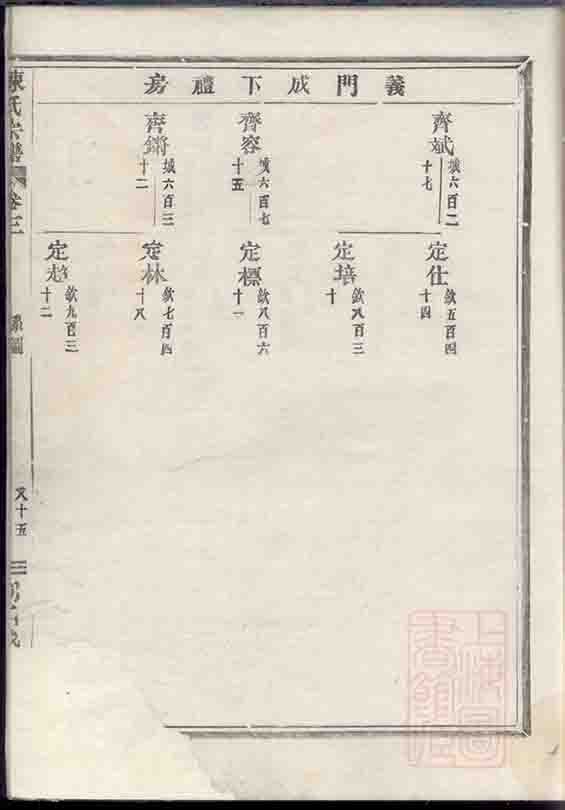 義門成下禮房
齊斌
城六百二
十七
齊容
城六百七
十五
齊鏘
城六百三
十二
定仕
欽五百四
十四
定培
欽八百三
十
定標
欽八百六
十一
定林
欽七百四
十八
定
欽九百三
十二
陳氏宗譜
卷三
系圖
又十五
上海圖
書館藏